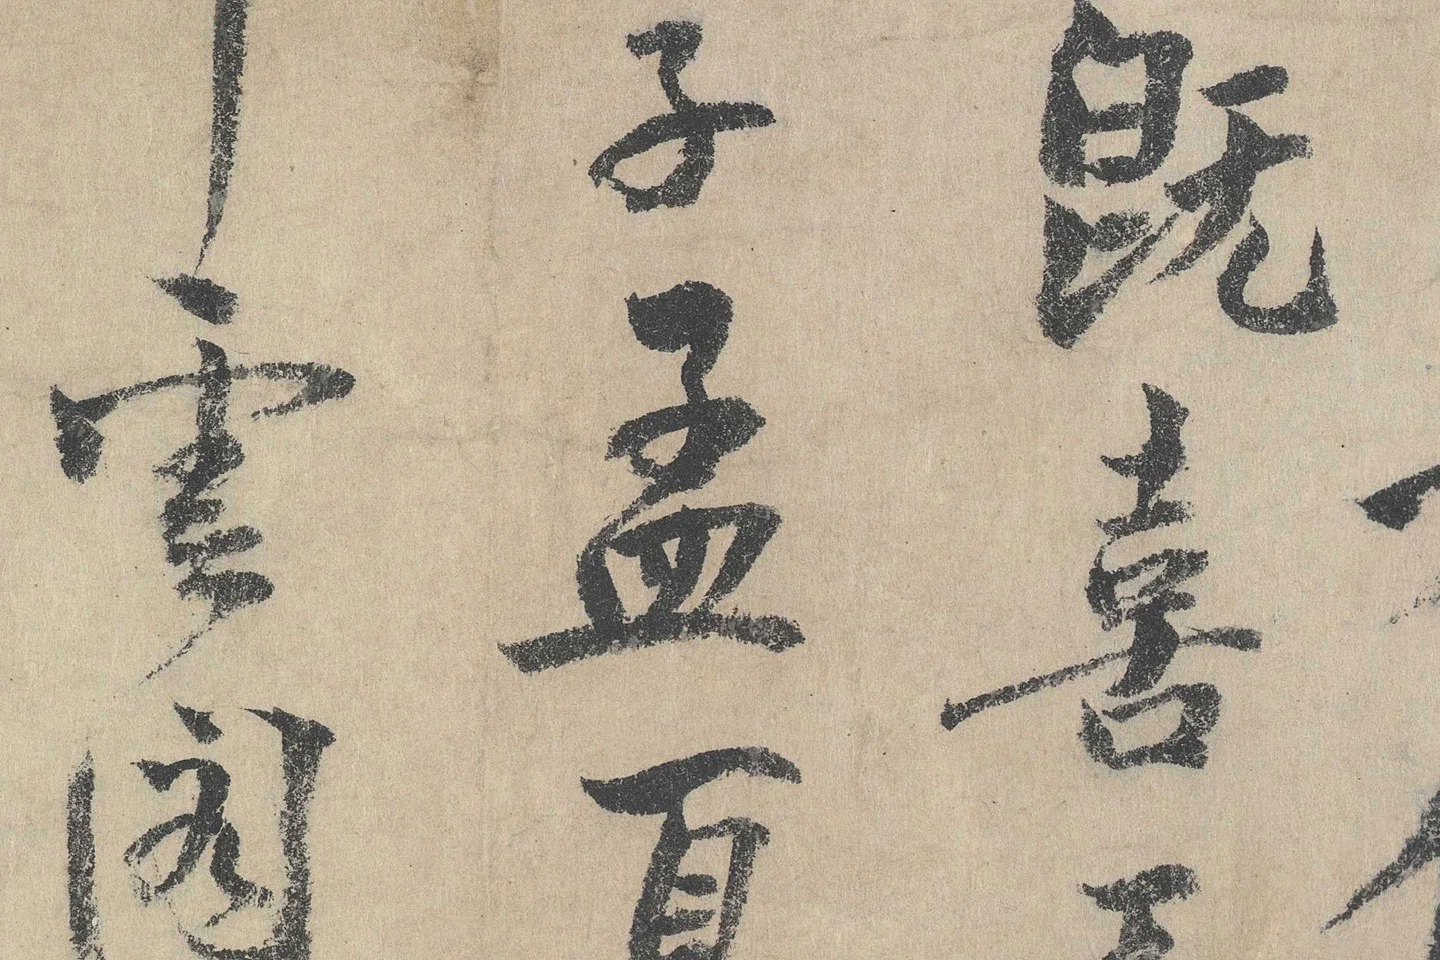 既喜
子孟夏
雲閣